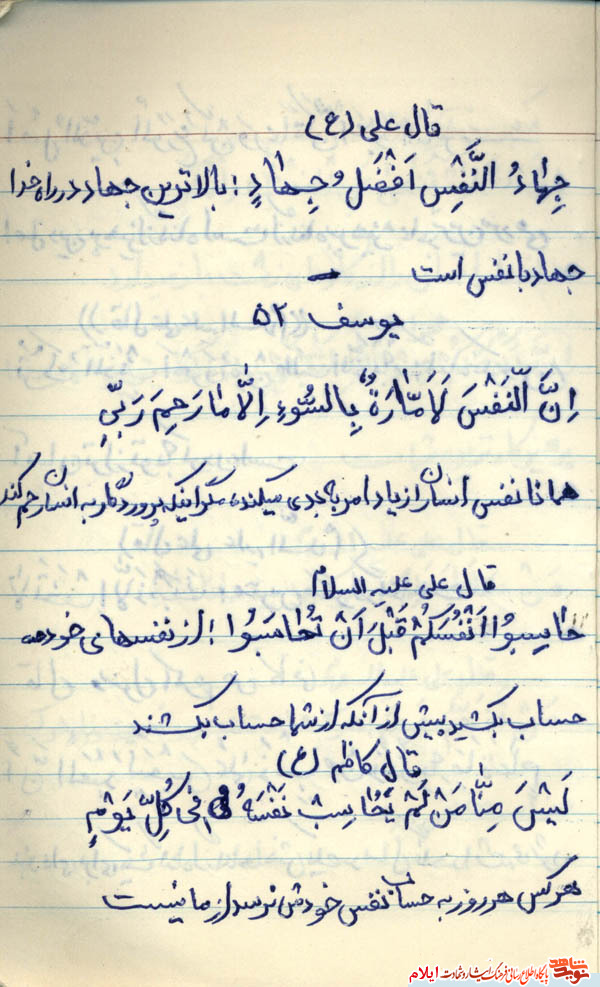 قال علی (ع)
جِهادُ النَّفْسِ اَفْضَلُ جِهادٍ : بالاترین جهاد در راه خدا
جهاد با نفس است
یوسف ۵۲
اِنَّ النَّفْسَ لَاَمّارَةٌ بِالسُّوءِ اِلّا ما رَحِمَ رَبّی
همانا نفس انسان را زیاد امر به بدی میکند، مگر اینکه پروردگار به انسان رحم کند
قال علی علیه السلام
حاسِبُوا اَنْفُسَکُمْ قَبْلَ اَنْ تُحاسَبُوا : از نفسهای خود
حساب بکشید پیش از آنکه از شما حساب بکشند
قال کاظم (ع)
لَیْسَ مِنّا مَنْ لَمْ یُحاسِبْ نَفْسَهُ فی کُلِّ یَوْمٍ
هرکس هر روز به حساب نفس خودش نرسد از ما نیست
نوید شاهد
پایگاه اطلاع رسانی فرهنگ ایثار و شهادت ایلام